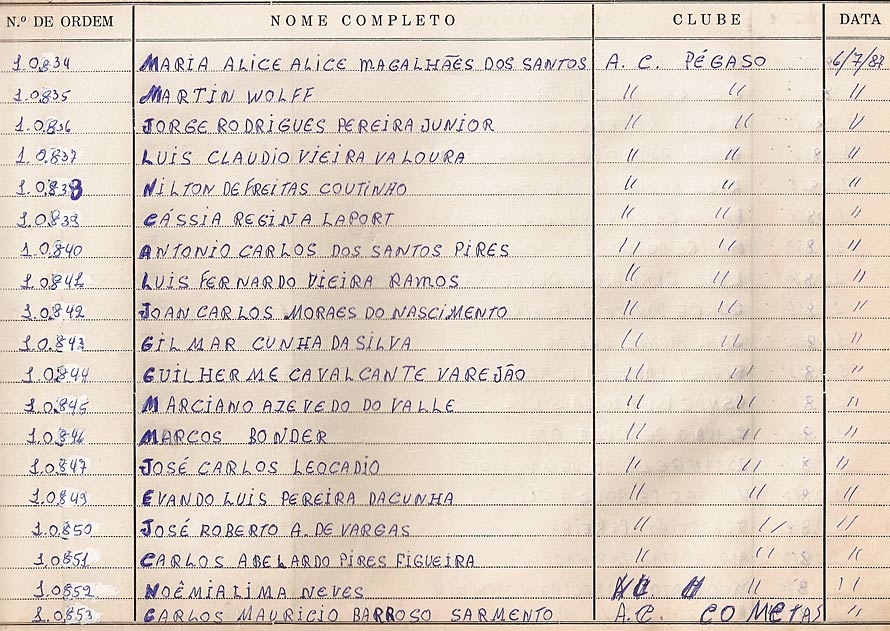 N.º DE ORDEM NOME COMPLETO CLUBE DATA
1.0.834 MARIA ALICE ALICE MAGALHÃES DOS SANTOS A. C. PÉGASO 6/7/87
1.0.835 MARTIN WOLFF " " "
1.0.836 JORGE RODRIGUES PEREIRA JUNIOR " " "
1.0.837 LUIS CLAUDIO VIEIRA VALOURA " " "
1.0.838 NILTON DE FREITAS COUTINHO " " "
1.0.839 CÁSSIA REGINA LAPORT " " "
1.0.840 ANTONIO CARLOS DOS SANTOS PIRES " " "
1.0.841 LUIS FERNARDO VIEIRA RAMOS " " "
1.0.842 JOAN CARLOS MORAES DO NASCIMENTO " " "
1.0.843 GILMAR CUNHA DA SILVA " " "
1.0.844 GUILHERME CAVALCANTE VAREJÃO " " "
1.0.845 MARCIANO AZEVEDO DO VALLE " " "
1.0.846 MARCOS BONDER " " "
1.0.847 JOSÉ CARLOS LEOCADIO " " "
1.0.849 EVANDO LUIS PEREIRA DACUNHA " " "
1.0.850 JOSÉ ROBERTO A. DE VARGAS " " "
1.0.851 CARLOS ABELARDO PIRES FIGUEIRA " " "
1.0.852 NOÊMIA LIMA NEVES " " "
1.0.853 CARLOS MAURICIO BARROSO SARMENTO A.C. COMETAS "